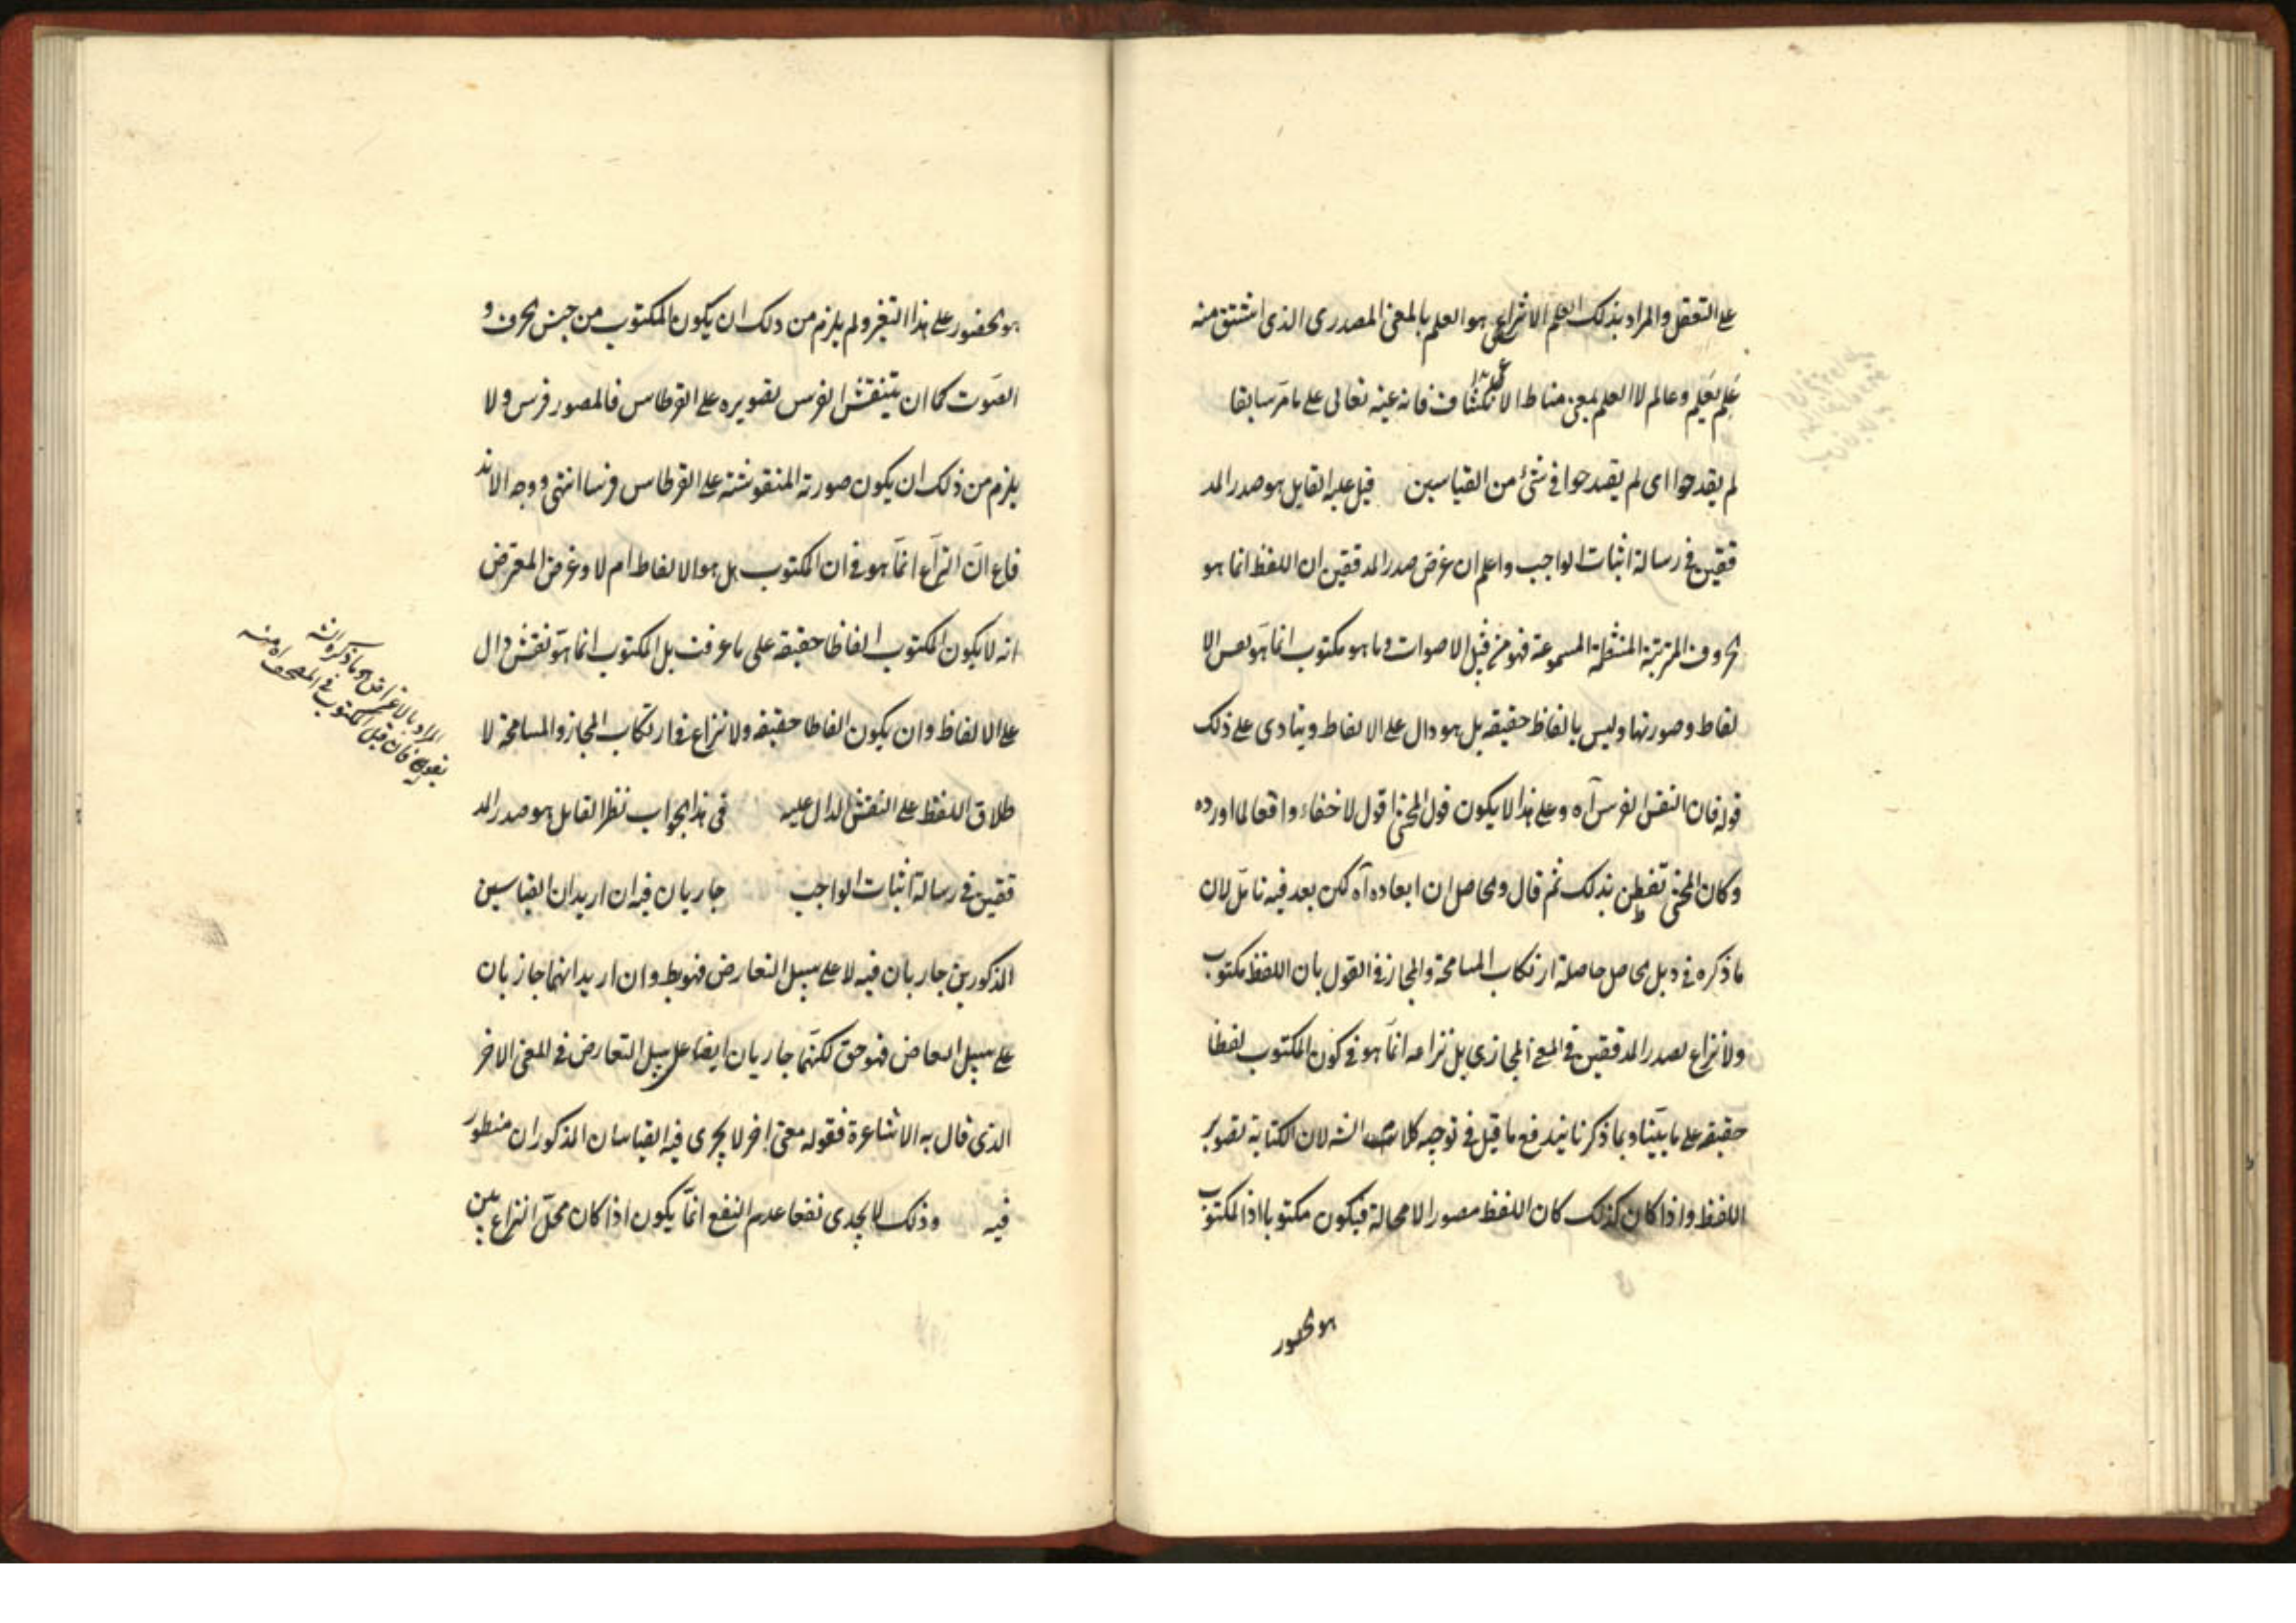 على التعقل والمراد بذلك العلم الانتزاعى هو العلم بالمعنى المصدرى الذى اشتق منه
علم يعلم وعالم لا العلم بمعنى مناط الانكشاف فانه عينه تعالى على ما مر سابقا
لم يقدحوا اى لم يقدحوا فى شئ من القياسين قيل عليه القايل هو صدر المد
ققين فى رسالة اثبات الواجب واعلم ان غرض صدر المدققين ان اللفظ انما هو
الحروف المترتبة المنتظمة المسموعة فهو من قبيل الاصوات وما هو مكتوب انما هو نقش الا
لفاظ وصورتها وليس بالفاظ حقيقة بل هو دال على الالفاظ وينادى على ذلك
قوله فان انتقش الفرس آه وعلى هذا لا يكون قول المحشى اقول لا خفاء واقعا لما اورده
وكان المحشى تفطن بذلك ثم قال والحاصل ان ابعاده آه لكن بعد فيه تامّل لان
ما ذكره فى ذيل الحاصل حاصله ارتكاب المسامحة والمجاز فى القول بان اللفظ مكتوب
ولا نزاع لصدر المدققين فى المعنى المجازى بل نزاعه انمّا هو فى كون المكتوب لفظا
حقيقة على ما بيّنا وبما ذكرنا يندفع ما قيل فى توجيه كلام الشه لان الكتابة تصوير
اللفظ واذا كان كذلك كان اللفظ مصورا لا محالة فيكون مكتوبا اذ المكتوب
هو الحضور
هو الحضور على هذا التغير ولم يلزم من ذلك ان يكون المكتوب من جنس الحرف و
الصوت كما ان ينتقش الفرس تصويره على القرطاس فالمصور فرس ولا
يلزم من ذلك ان يكون صورته المنقوشة على القرطاس فرسا انتهى ووجه الاند
فاع انّ النزاع انمّا هو فى ان المكتوب هل هو الالفاظ ام لا وغرض المعترض
انه لا يكون المكتوب الفاظا حقيقة على ما عرفت بل المكتوب انما هو نقش دال
على الالفاظ وان يكون الفاظا حقيقة ولا نزاع فى ارتكاب المجاز والمسامحة لا
طلاق اللفظ على النقش الدال عليه فى هذا الجواب نظر القايل هو صدر المد
ققين فى رسالة اثبات الواجب جاريان فيه ان اريد ان القياسين
المذكورين جاريان فيه لا على سبيل التعارض فهو بط وان اريد انهما جاريان
على سبيل التعارض فهو حق لكنّهما جاريان ايضا على سبيل التعارض فى المعنى الاخر
الذى قال به الاشاعرة فقوله معنى اخر لا يجرى فيه القياسان المذكوران منظور
فيه وذلك لا يجدى نفعا عدم النفع انمّا يكون اذا كان محلّ النزاع بين
المراد بالاعتراض هو ما ذكره الشه
بقوله فان قيل المكتوب فى المصحف آه منه